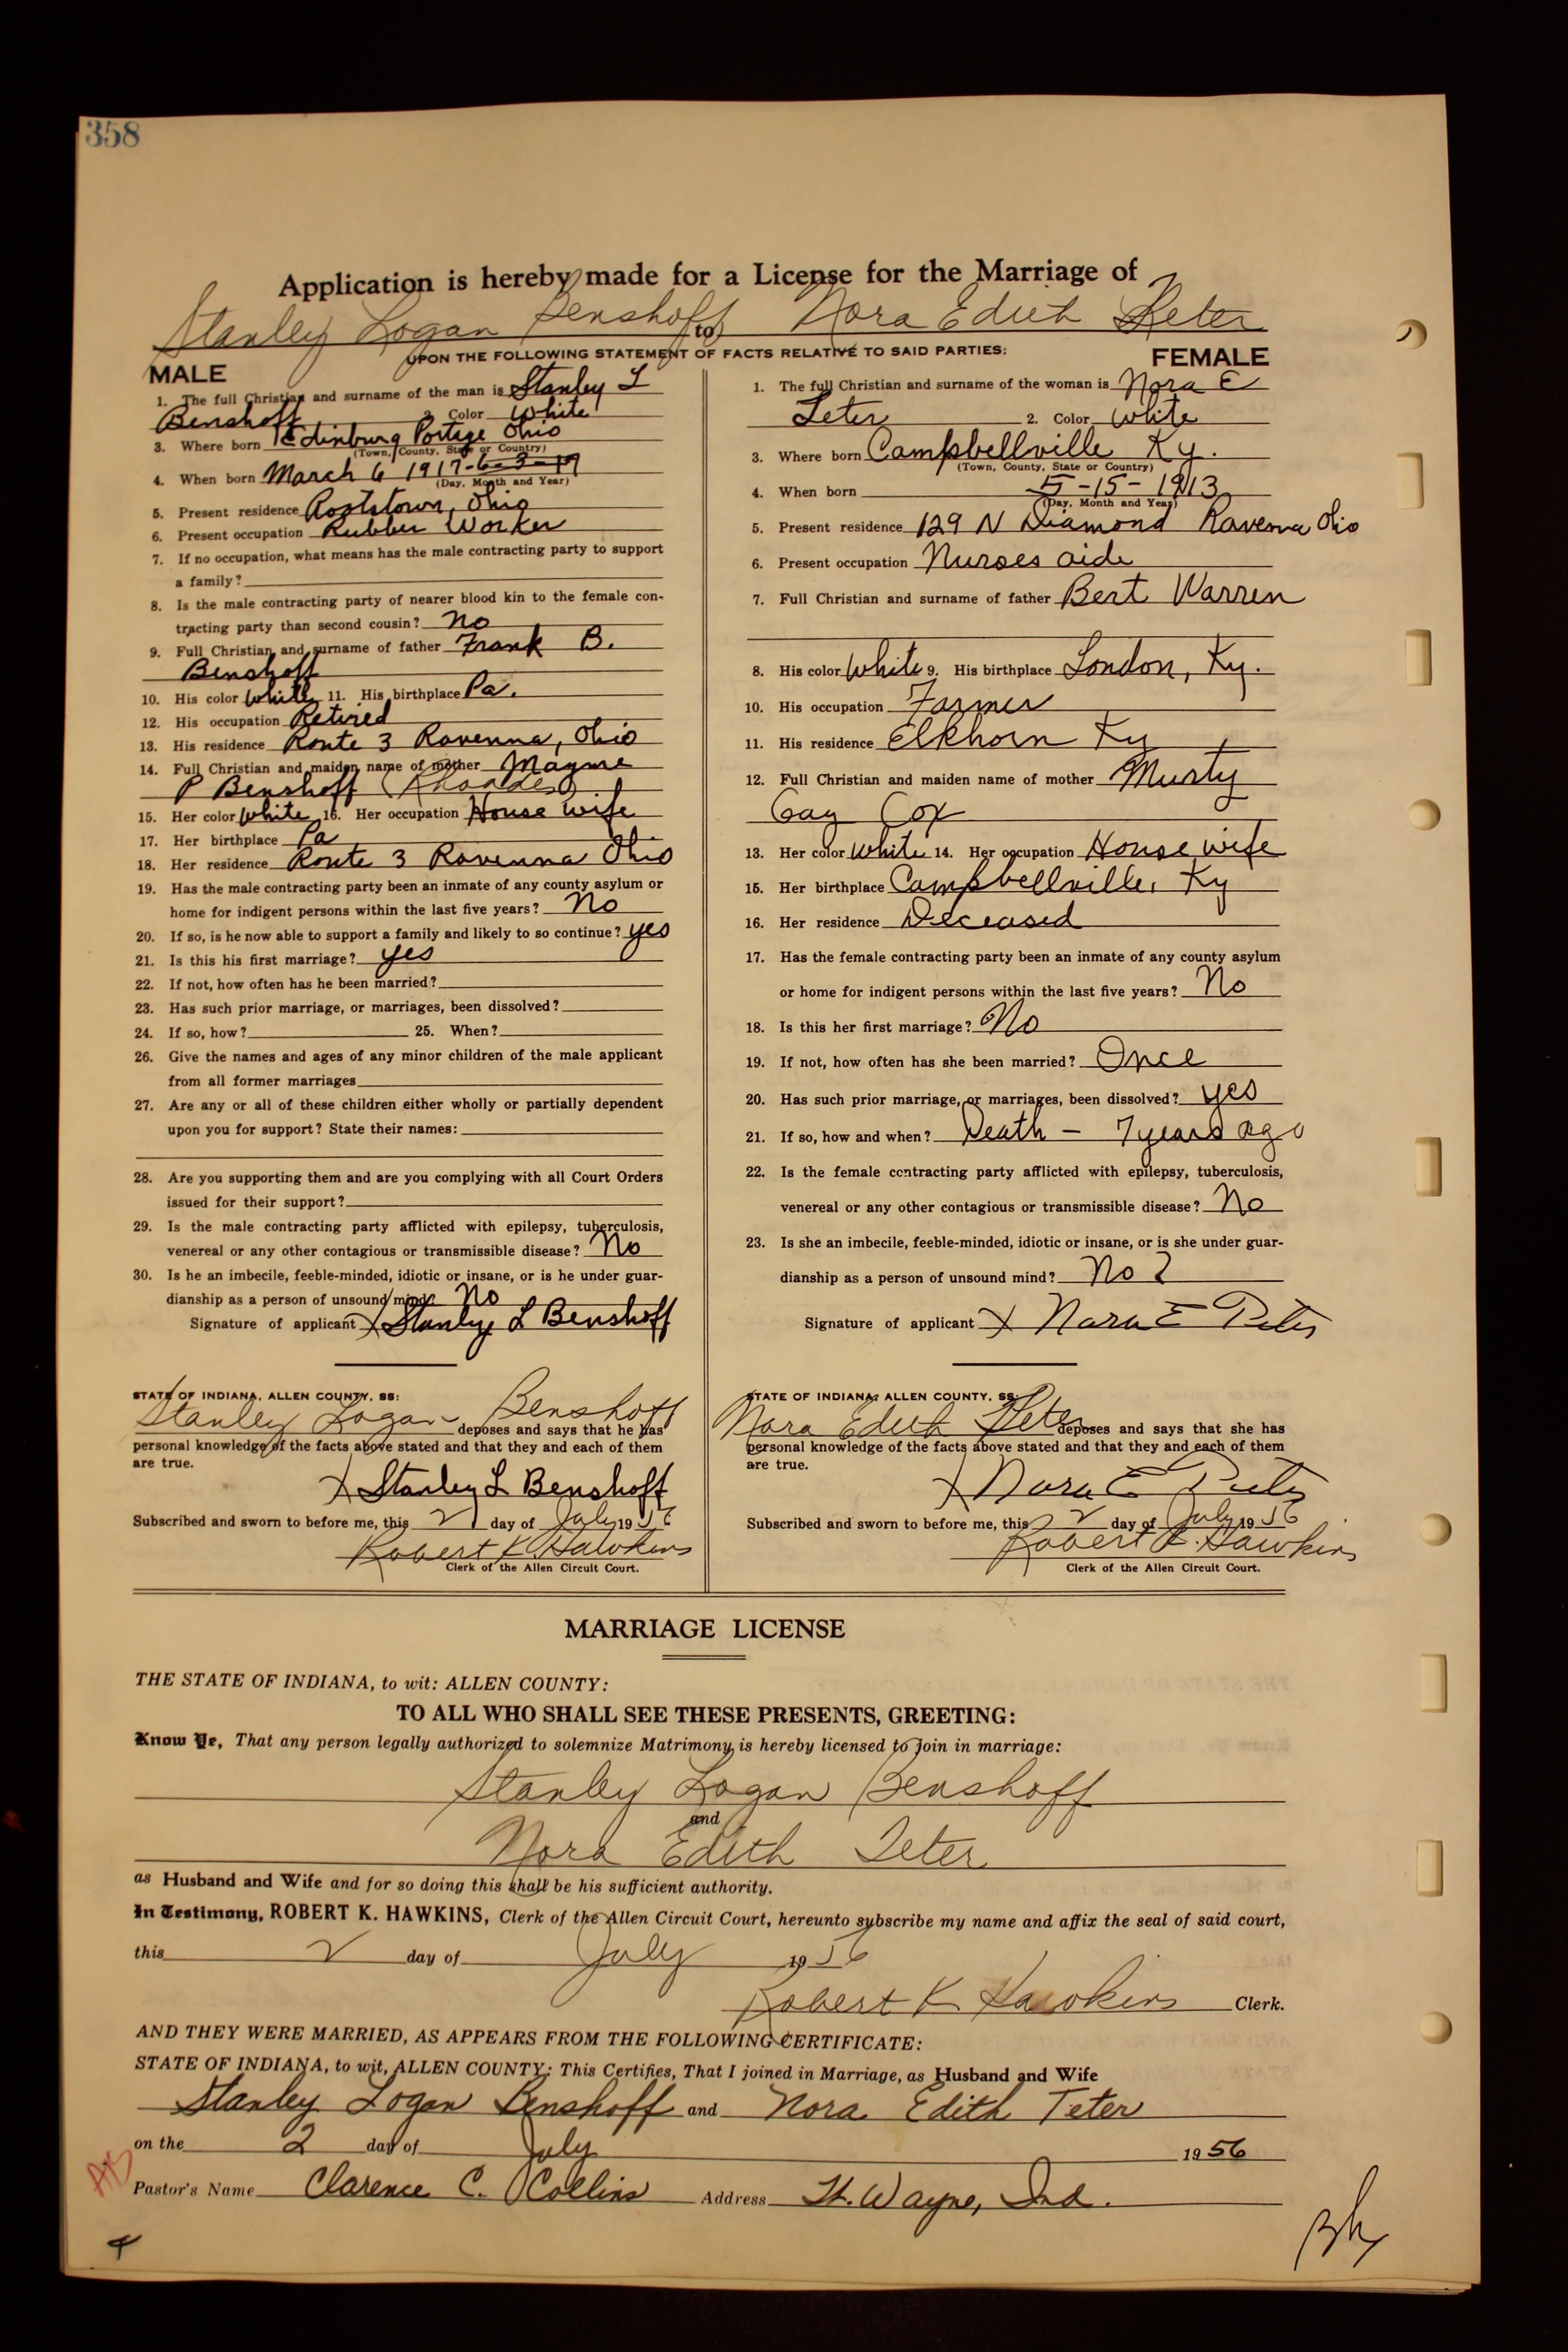 358
Application is hereby made for a License for the Marriage of
Stanley Logan Benshoff to Nora Edith Teter
UPON THE FOLLOWING STATEMENT OF FACTS RELATIVE TO SAID PARTIES:
MALE
1. The full Christian and surname of the man is Stanley L
Benshoff 2. Color White
3. Where born Edinburg Portage Ohio
(Town, County, State or Country)
4. When born March 6 1917-6-3-17
(Day, Month and Year)
5. Present residence Rootstown, Ohio
6. Present occupation Rubber Worker
7. If no occupation, what means has the male contracting party to support
a family?
8. Is the male contracting party of nearer blood kin to the female con-
tracting party than second cousin? No
9. Full Christian and surname of father Frank B.
Benshoff
10. His color White 11. His birthplace Pa.
12. His occupation Retired
13. His residence Route 3 Ravenna, Ohio
14. Full Christian and maiden name of mother Mayme
P Benshoff (Rhoades)
15. Her color White 16. Her occupation House wife
17. Her birthplace Pa
18. Her residence Route 3 Ravenna Ohio
19. Has the male contracting party been an inmate of any county asylum or
home for indigent persons within the last five years? No
20. If so, is he now able to support a family and likely to so continue? yes
21. Is this his first marriage? yes
22. If not, how often has he been married?
23. Has such prior marriage, or marriages, been dissolved?
24. If so, how? 25. When?
26. Give the names and ages of any minor children of the male applicant
from all former marriages
27. Are any or all of these children either wholly or partially dependent
upon you for support? State their names:
28. Are you supporting them and are you complying with all Court Orders
issued for their support?
29. Is the male contracting party afflicted with epilepsy, tuberculosis,
venereal or any other contagious or transmissible disease? No
30. Is he an imbecile, feeble-minded, idiotic or insane, or is he under guar-
dianship as a person of unsound mind? No
Signature of applicant X Stanley L Benshoff
STATE OF INDIANA, ALLEN COUNTY, SS:
Stanley Logan Benshoff deposes and says that he has
personal knowledge of the facts above stated and that they and each of them
are true.
X Stanley L Benshoff
Subscribed and sworn to before me, this 2 day of July 1956
Robert K. Hawkins
Clerk of the Allen Circuit Court.
FEMALE
1. The full Christian and surname of the woman is Nora E
Teter 2. Color White
3. Where born Campbellville Ky.
(Town, County, State or Country)
4. When born 5-15-1913
(Day, Month and Year)
5. Present residence 129 N Diamond Ravenna Ohio
6. Present occupation Nurses aide
7. Full Christian and surname of father Bert Warren
8. His color White 9. His birthplace London, Ky.
10. His occupation Farmer
11. His residence Elkhorn Ky
12. Full Christian and maiden name of mother Musty
Gay Cox
13. Her color White 14. Her occupation House wife
15. Her birthplace Campbellville, Ky
16. Her residence Deceased
17. Has the female contracting party been an inmate of any county asylum
or home for indigent persons within the last five years? No
18. Is this her first marriage? No
19. If not, how often has she been married? Once
20. Has such prior marriage, or marriages, been dissolved? yes
21. If so, how and when? Death - 7 years ago
22. Is the female contracting party afflicted with epilepsy, tuberculosis,
venereal or any other contagious or transmissible disease? No
23. Is she an imbecile, feeble-minded, idiotic or insane, or is she under guar-
dianship as a person of unsound mind? No
Signature of applicant X Nora E Teter
STATE OF INDIANA, ALLEN COUNTY, SS:
Nora Edith Teter deposes and says that she has
personal knowledge of the facts above stated and that they and each of them
are true.
X Nora E Teter
Subscribed and sworn to before me, this 2 day of July 1956
Robert K. Hawkins
Clerk of the Allen Circuit Court.
MARRIAGE LICENSE
THE STATE OF INDIANA, to wit: ALLEN COUNTY:
TO ALL WHO SHALL SEE THESE PRESENTS, GREETING:
Know Ye, That any person legally authorized to solemnize Matrimony is hereby licensed to join in marriage:
Stanley Logan Benshoff
and
Nora Edith Teter
as Husband and Wife and for so doing this shall be his sufficient authority.
In Testimony, ROBERT K. HAWKINS, Clerk of the Allen Circuit Court, hereunto subscribe my name and affix the seal of said court,
this 2 day of July 1956
Robert K Hawkins Clerk.
AND THEY WERE MARRIED, AS APPEARS FROM THE FOLLOWING CERTIFICATE:
STATE OF INDIANA, to wit, ALLEN COUNTY: This Certifies, That I joined in Marriage, as Husband and Wife
Stanley Logan Benshoff and Nora Edith Teter
on the 2 day of July 1956
Pastor's Name Clarence C. Collins Address Ft. Wayne, Ind.